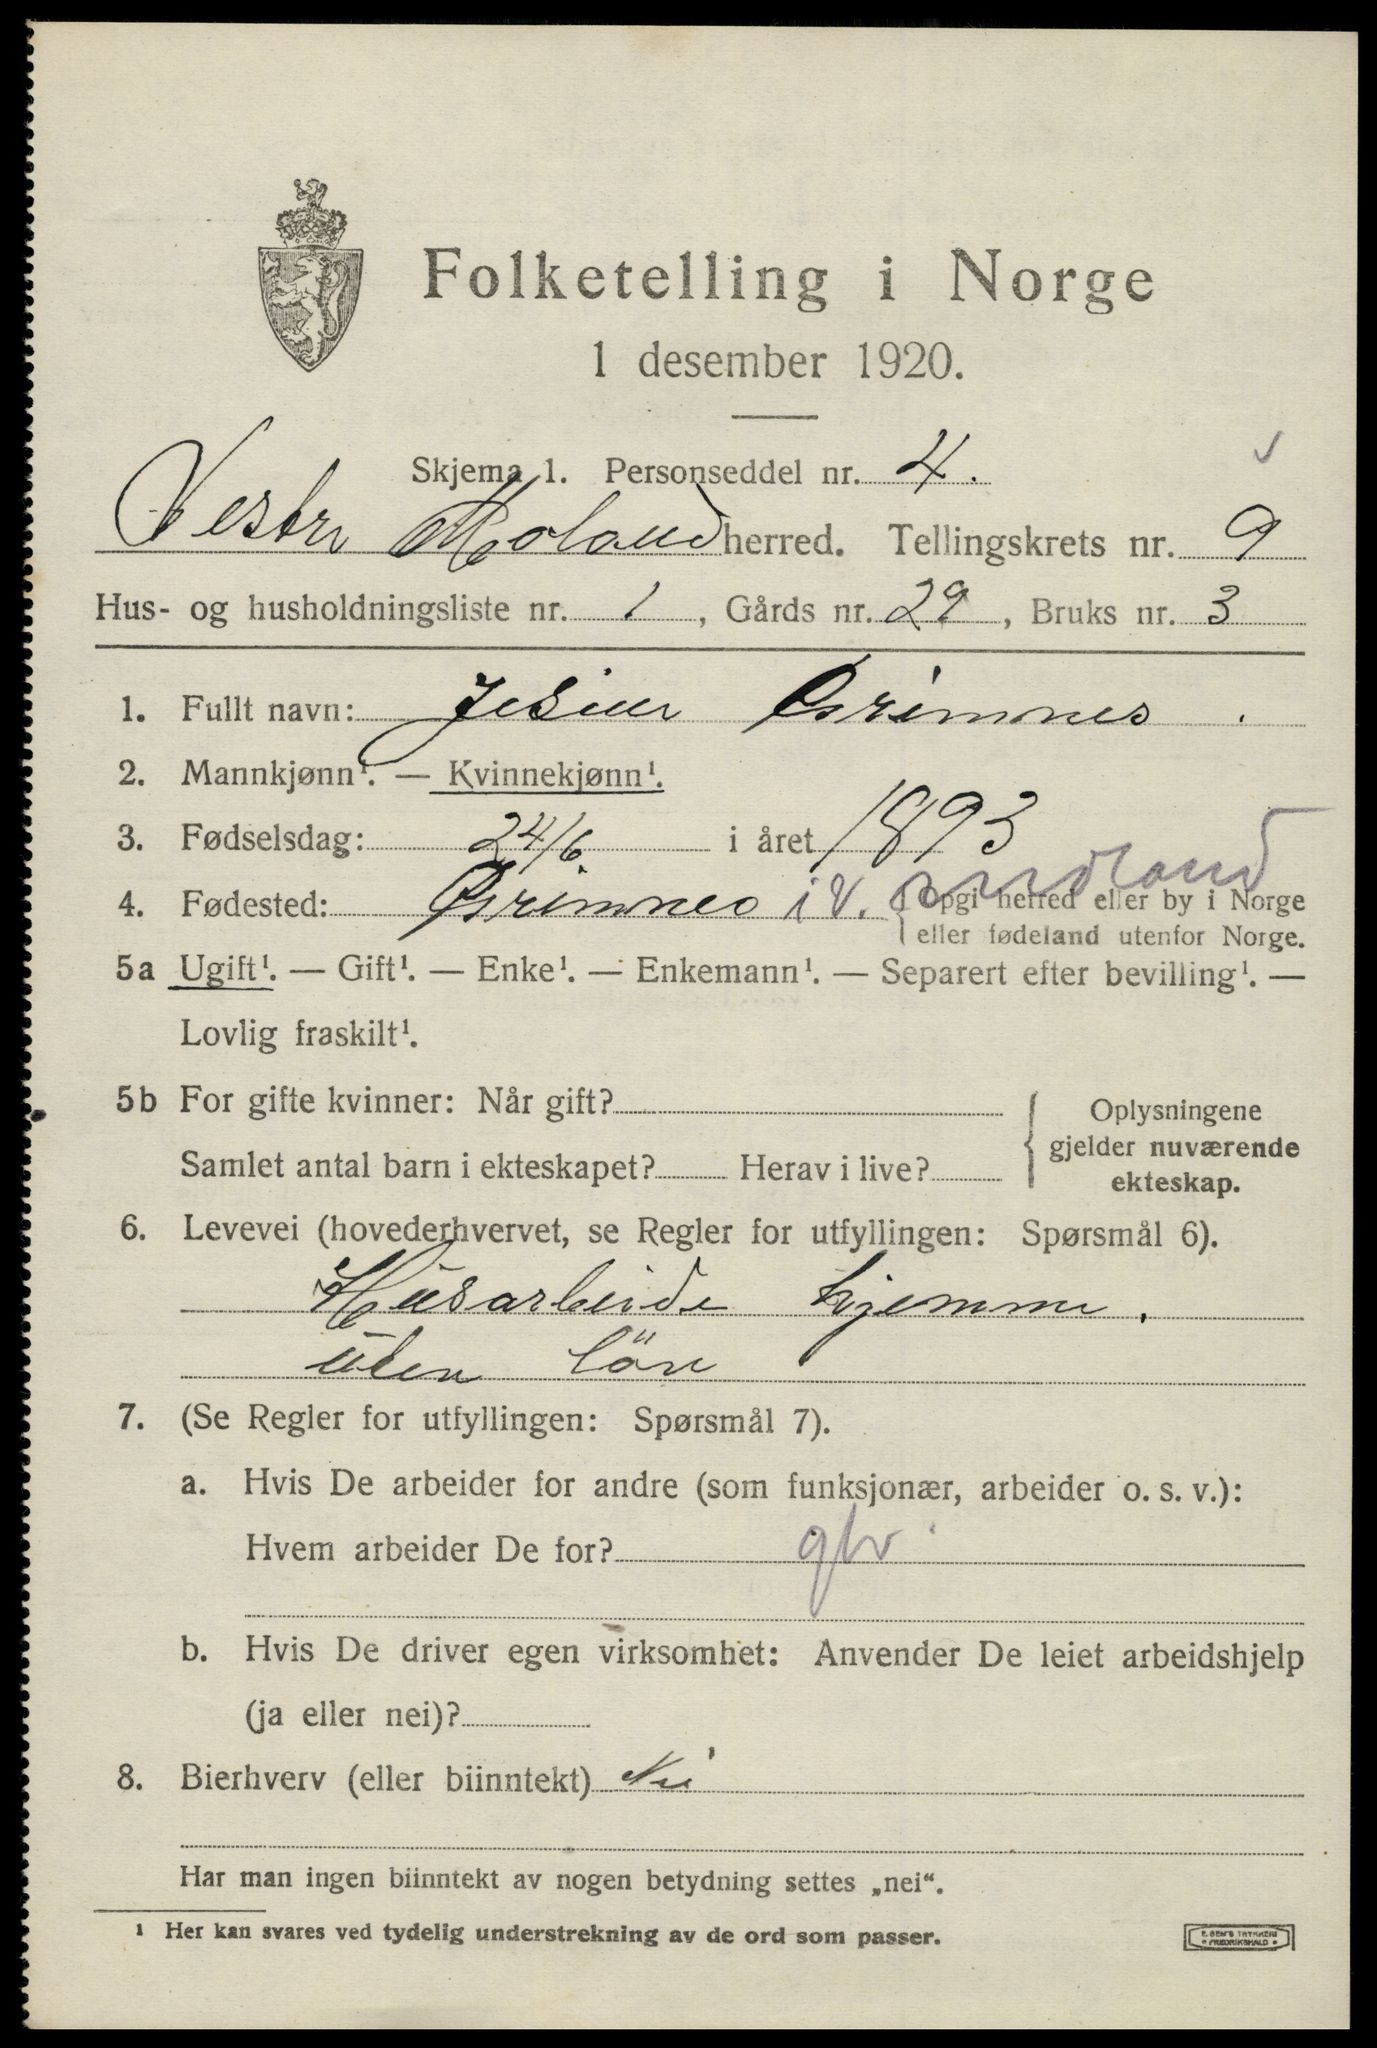 Folketelling i Norge
1 desember 1920.
Skjema 1. Personseddel nr. 4.
Vestre Moland herred. Tellingskrets nr. 9
Hus- og husholdningsliste nr. 1, Gårds nr. 29, Bruks nr. 3
1. Fullt navn: Jesine Grimnes.
2. Mannkjønn¹. — Kvinnekjønn¹.
3. Fødselsdag: 24/6. i året 1893
4. Fødested: Grimnes i V. Moland { Opgi herred eller by i Norge
eller fødeland utenfor Norge.
5a Ugift¹. — Gift¹. — Enke¹. — Enkemann¹. — Separert efter bevilling¹. —
Lovlig fraskilt¹.
5b For gifte kvinner: Når gift?
Samlet antal barn i ekteskapet? Herav i live?
{ Oplysningene
gjelder nuværende
ekteskap.
6. Levevei (hovederhvervet, se Regler for utfyllingen: Spørsmål 6).
Husarbeide hjemme.
uten lön
7. (Se Regler for utfyllingen: Spørsmål 7).
a. Hvis De arbeider for andre (som funksjonær, arbeider o. s. v.):
Hvem arbeider De for?
b. Hvis De driver egen virksomhet: Anvender De leiet arbeidshjelp
(ja eller nei)?
8. Bierhverv (eller biinntekt) Nei
Har man ingen biinntekt av nogen betydning settes „nei“.
¹ Her kan svares ved tydelig understrekning av de ord som passer.